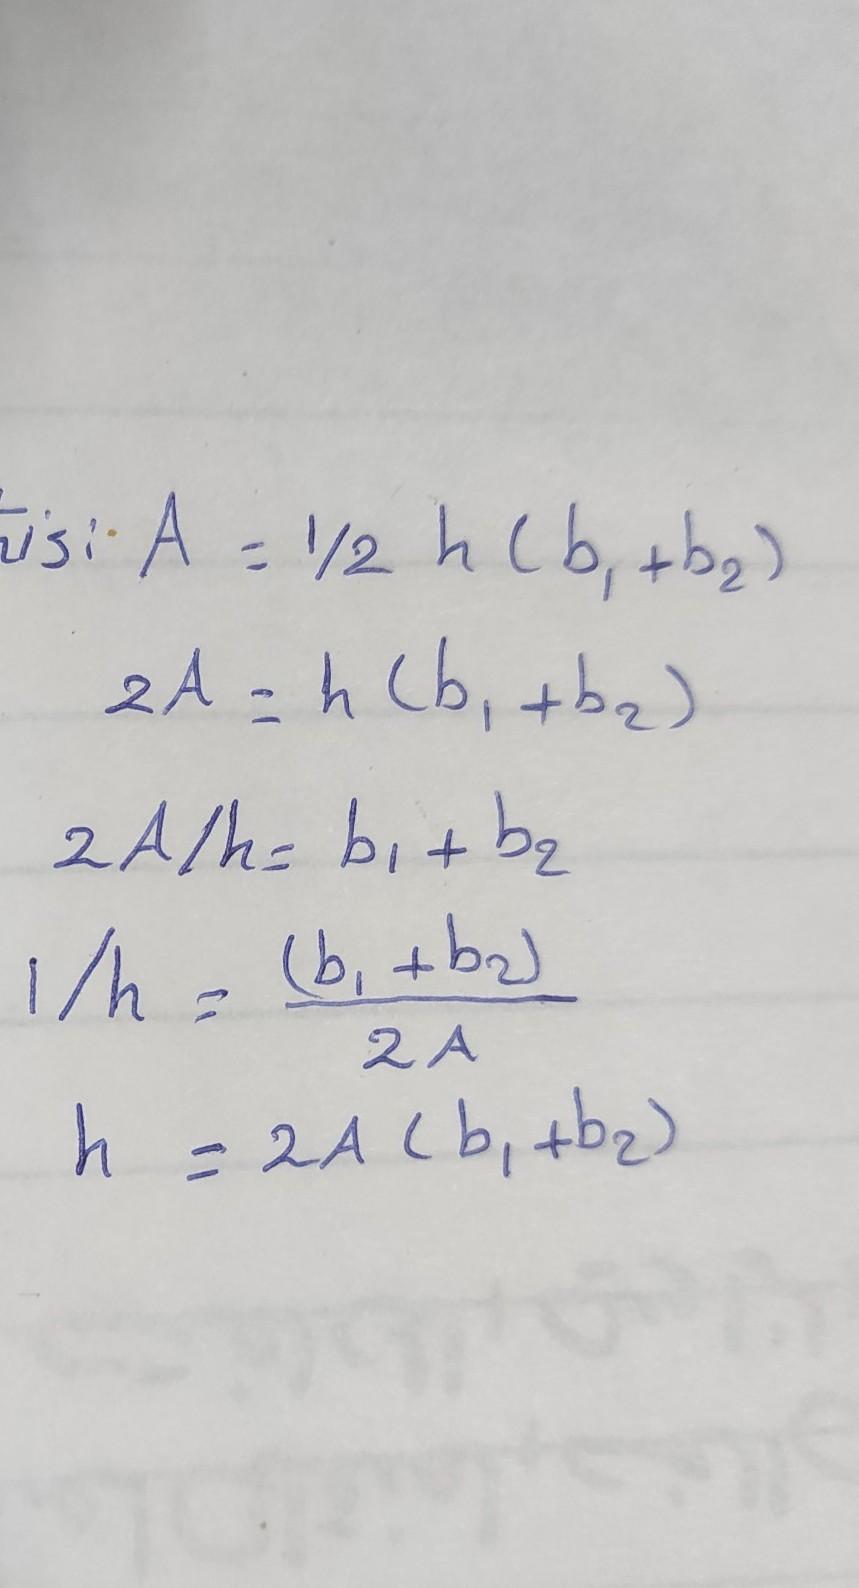 A = 1/2 h (b₁ + b₂)
2A = h (b₁ + b₂)
2A/h = b₁ + b₂
1/h = (b₁ + b₂) / 2A
h = 2A (b₁ + b₂)